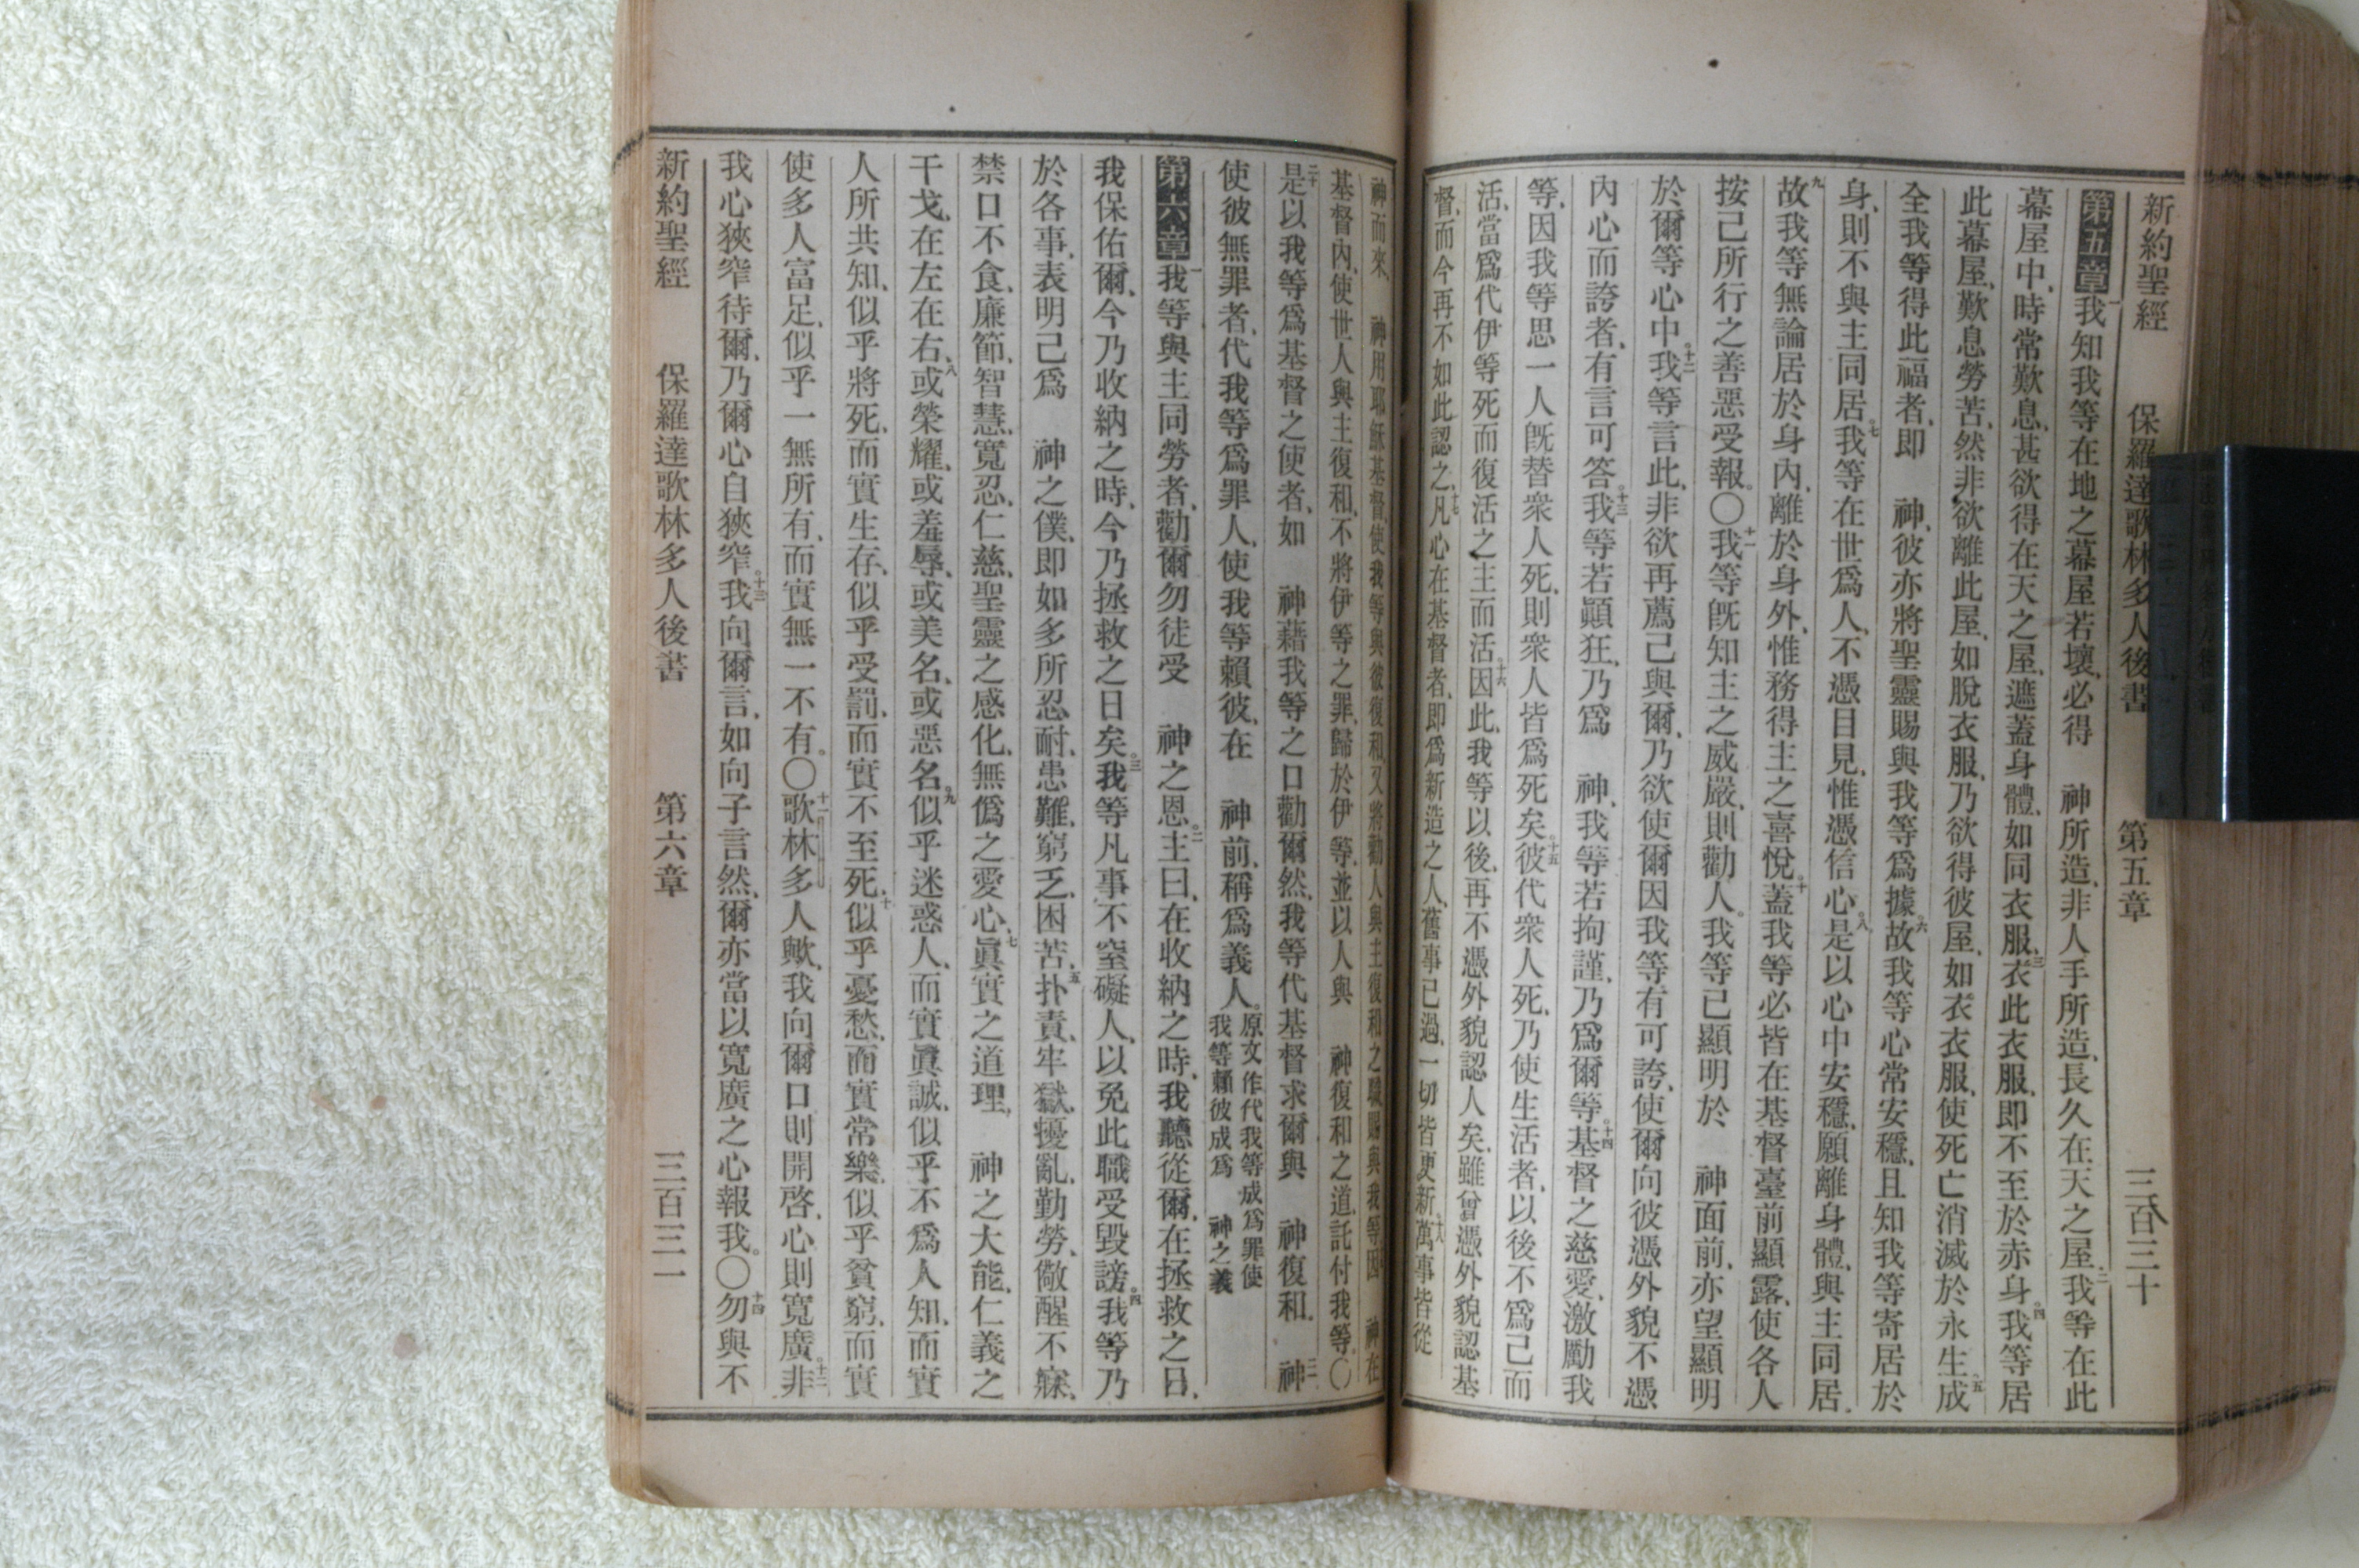 新約聖經　保羅達歌林多人後書　第五章　三百三十
第五章一我知我等在地之幕屋若壞、必得　神所造、非人手所造、長久在天之屋、二我等在此
幕屋中、時常歎息、甚欲得在天之屋、遮蓋身體、如同衣服、三衣此衣服、即不至於赤身。四我等居
此幕屋、歎息勞苦、然非欲離此屋、如脫衣服、乃欲得彼屋、如衣衣服、使死亡消滅於永生。五成
全我等得此福者、即　神、彼亦將聖靈賜與我等爲據。六故我等心常安穩、且知我等寄居於
身、則不與主同居。七我等在世爲人、不憑目見、惟憑信心。八是以心中安穩、願離身體、與主同居。
九故我等無論居於身內、離於身外、惟務得主之喜悅。十蓋我等必皆在基督臺前顯露、使各人
按己所行之善惡受報。〇十一我等旣知主之威嚴、則勸人。我等已顯明於　神面前、亦望顯明
於爾等心中。十二我等言此、非欲再薦己與爾、乃欲使爾因我等有可誇、使爾向彼憑外貌不憑
內心而誇者、有言可答。十三我等若顚狂、乃爲　神、我等若拘謹、乃爲爾等。十四基督之慈愛、激勵我
等、因我等思一人旣替衆人死、則衆人皆爲死矣。十五彼代衆人死、乃使生活者、以後不爲己而
活、當爲代伊等死而復活之主而活。十六因此、我等以後、再不憑外貌認人矣、雖曾憑外貌認基
督、而今再不如此認之。十七凡心在基督者、即爲新造之人、舊事已過、一切皆更新。十八萬事皆從
神而來、　神用耶穌基督、使我等與彼復和、又將勸人與主復和之職賜與我等、因　神在
基督內、使世人與主復和、不將伊等之罪、歸於伊等、並以人與　神復和之道、託付我等。〇
二十是以我等爲基督之使者、如　神藉我等之口勸爾然、我等代基督求爾與　神復和。二一神
使彼無罪者、代我等爲罪人、使我等賴彼、在　神前、稱爲義人。原文作代我等成爲罪使我等賴彼成爲　神之義
第六章一我等與主同勞者、勸爾勿徒受　神之恩。二主曰、在收納之時、我聽從爾、在拯救之日、
我保佑爾、今乃收納之時、今乃拯救之日矣。三我等凡事不窒礙人、以免此職受毀謗。四我等乃
於各事、表明己爲　神之僕、即如多所忍耐、患難、窮乏、困苦、五扑責、牢獄、擾亂、勤勞、儆醒不寐、
禁口不食、廉節、智慧、寬忍、仁慈、聖靈之感化、無僞之愛心、七眞實之道理、　神之大能、仁義之
干戈、在左在右、八或榮耀、或羞辱、或美名、或惡名。九似乎迷惑人、而實眞誠、似乎不爲人知、而實
人所共知、似乎將死、而實生存、似乎受罰、而實不至死、十似乎憂愁、而實常樂、似乎貧窮、而實
使多人富足、似乎一無所有、而實無一不有。〇十一歌林多人歟、我向爾口則開啓、心則寬廣。十二非
我心狹窄待爾、乃爾心自狹窄。十三我向爾言、如向子言然、爾亦當以寬廣之心報我。〇十四勿與不
新約聖經　保羅達歌林多人後書　第六章　三百三一